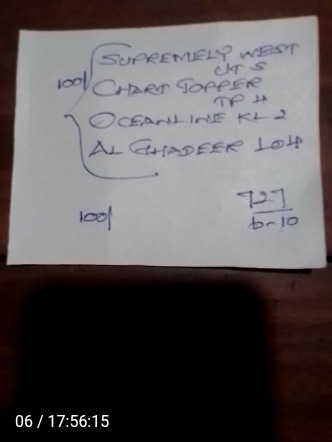 SUPREMELY WEST
UT 5
100/ CHART TOPPER
TP 4
OCEANLINE KL 2
AL GHADEER LO4
727
100/
b-10
06 / 17:56:15